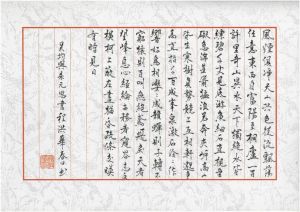 風煙俱淨天山共色從流飄蕩
任意東西自富陽至桐廬一百
許里奇山異水天下獨絕水皆
縹碧千丈見底游魚細石直視無
礙急湍甚箭猛浪若奔夾岸高山
皆生寒樹負勢競上互相軒邈爭
高直指千百成峰泉水激石泠泠作
響好鳥相鳴嚶嚶成韻蟬則千轉不
窮猿則百叫無絕鳶飛戾天者
望峰息心經綸世務者窺谷忘反
橫柯上蔽在晝猶昏疏條交映
有時見日
吳均與朱元思書